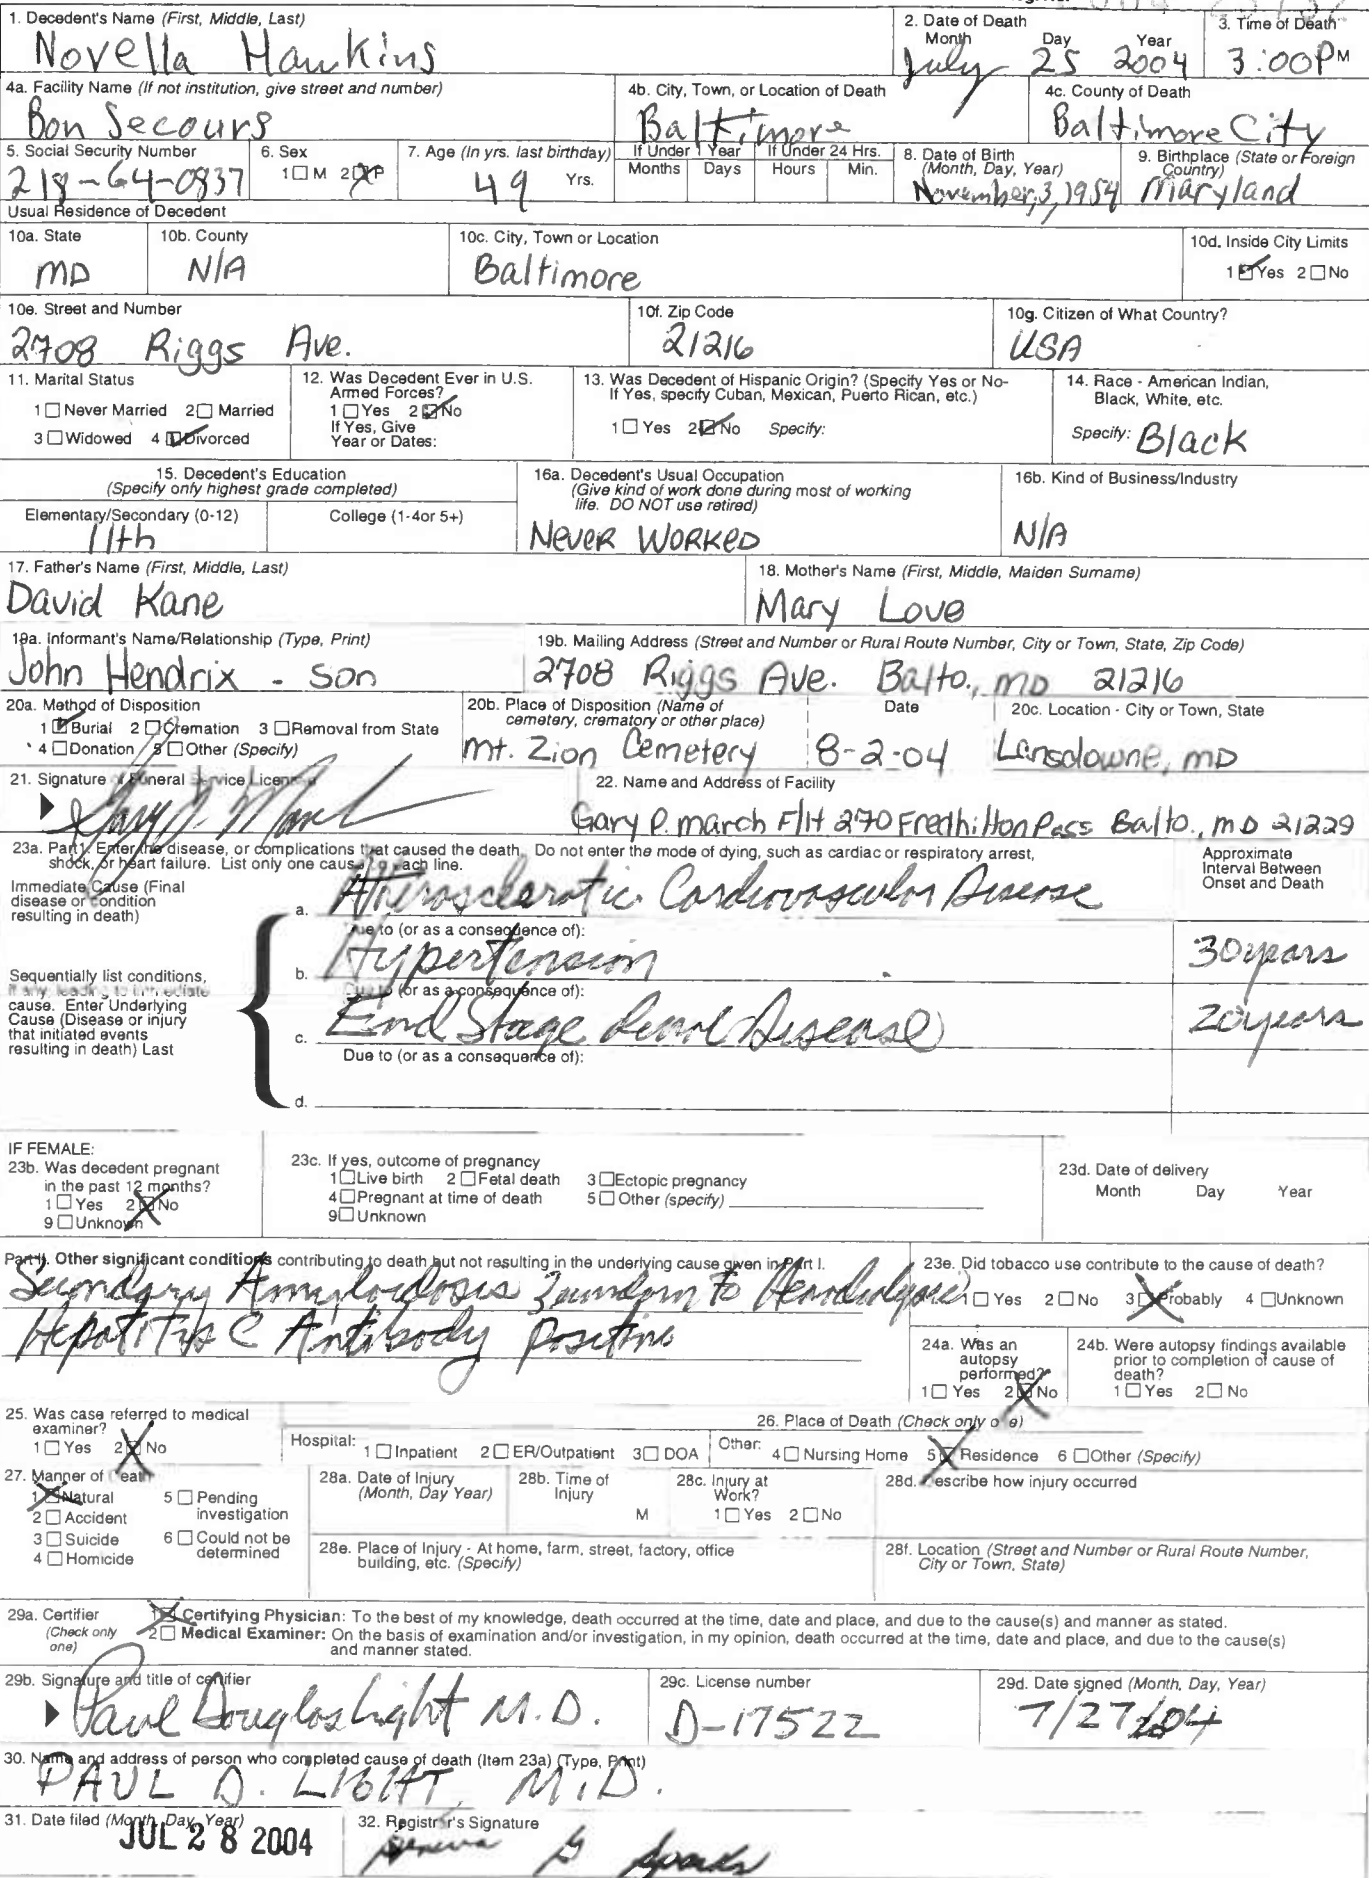 1. Decedent's Name (First, Middle, Last)
Novella Hawkins
2. Date of Death
Month Day Year
July 25 2004
3. Time of Death
3:00P M
4a. Facility Name (If not institution, give street and number)
Bon Secours
4b. City, Town, or Location of Death
Baltimore
4c. County of Death
Baltimore City
5. Social Security Number
218-64-0837
6. Sex
1 M 2 F
7. Age (In yrs. last birthday)
49 Yrs.
If Under 1 Year
Months Days
If Under 24 Hrs.
Hours Min.
8. Date of Birth
(Month, Day, Year)
November, 3, 1954
9. Birthplace (State or Foreign
Country)
Maryland
Usual Residence of Decedent
10a. State
MD
10b. County
N/A
10c. City, Town or Location
Baltimore
10d. Inside City Limits
1 Yes 2 No
10e. Street and Number
2708 Riggs Ave.
10f. Zip Code
21216
10g. Citizen of What Country?
USA
11. Marital Status
1 Never Married 2 Married
3 Widowed 4 Divorced
12. Was Decedent Ever in U.S.
Armed Forces?
1 Yes 2 No
If Yes, Give
Year or Dates:
13. Was Decedent of Hispanic Origin? (Specify Yes or No-
If Yes, specify Cuban, Mexican, Puerto Rican, etc.)
1 Yes 2 No Specify:
14. Race - American Indian,
Black, White, etc.
Specify: Black
15. Decedent's Education
(Specify only highest grade completed)
Elementary/Secondary (0-12)
11th
College (1-4or 5+)
16a. Decedent's Usual Occupation
(Give kind of work done during most of working
life. DO NOT use retired)
Never Worked
16b. Kind of Business/Industry
N/A
17. Father's Name (First, Middle, Last)
David Kane
18. Mother's Name (First, Middle, Maiden Surname)
Mary Love
19a. Informant's Name/Relationship (Type, Print)
John Hendrix - son
19b. Mailing Address (Street and Number or Rural Route Number, City or Town, State, Zip Code)
2708 Riggs Ave. Balto., MD 21216
20a. Method of Disposition
1 Burial 2 Cremation 3 Removal from State
4 Donation 5 Other (Specify)
20b. Place of Disposition (Name of
cemetery, crematory or other place)
Mt. Zion Cemetery
Date
8-2-04
20c. Location - City or Town, State
Lansdowne, MD
21. Signature of Funeral Service Licensee
22. Name and Address of Facility
Gary P. March F/H 270 Fredhilton Pass Balto., MD 21229
23a. Part I. Enter the disease, or complications that caused the death. Do not enter the mode of dying, such as cardiac or respiratory arrest,
shock, or heart failure. List only one cause on each line.
Approximate
Interval Between
Onset and Death
Immediate Cause (Final
disease or condition
resulting in death)
a. Atherosclerotic Cardiovascular Disease
Due to (or as a consequence of):
b. Hypertension
30 years
Due to (or as a consequence of):
c. End Stage Renal Disease
20 years
Due to (or as a consequence of):
d.
Sequentially list conditions,
if any, leading to immediate
cause. Enter Underlying
Cause (Disease or injury
that initiated events
resulting in death) Last
IF FEMALE:
23b. Was decedent pregnant
in the past 12 months?
1 Yes 2 No
9 Unknown
23c. If yes, outcome of pregnancy
1 Live birth 2 Fetal death 3 Ectopic pregnancy
4 Pregnant at time of death 5 Other (specify)
9 Unknown
23d. Date of delivery
Month Day Year
Part II. Other significant conditions contributing to death but not resulting in the underlying cause given in Part I.
Secondary Amyloidosis Secondary to Hemodialysis
Hepatitis C Antibody Positive
23e. Did tobacco use contribute to the cause of death?
1 Yes 2 No 3 Probably 4 Unknown
24a. Was an
autopsy
performed?
1 Yes 2 No
24b. Were autopsy findings available
prior to completion of cause of
death?
1 Yes 2 No
25. Was case referred to medical
examiner?
1 Yes 2 No
26. Place of Death (Check only one)
Hospital: 1 Inpatient 2 ER/Outpatient 3 DOA Other: 4 Nursing Home 5 Residence 6 Other (Specify)
27. Manner of Death
1 Natural 5 Pending
investigation
2 Accident
3 Suicide 6 Could not be
determined
4 Homicide
28a. Date of Injury
(Month, Day Year)
28b. Time of
Injury
M
28c. Injury at
Work?
1 Yes 2 No
28d. Describe how injury occurred
28e. Place of Injury - At home, farm, street, factory, office
building, etc. (Specify)
28f. Location (Street and Number or Rural Route Number,
City or Town, State)
29a. Certifier
(Check only
one)
1 Certifying Physician: To the best of my knowledge, death occurred at the time, date and place, and due to the cause(s) and manner as stated.
2 Medical Examiner: On the basis of examination and/or investigation, in my opinion, death occurred at the time, date and place, and due to the cause(s)
and manner stated.
29b. Signature and title of certifier
Paul Douglas Light M.D.
29c. License number
D-17522
29d. Date signed (Month, Day, Year)
7/27/04
30. Name and address of person who completed cause of death (Item 23a) (Type, Print)
PAUL D. LIGHT, M.D.
31. Date filed (Month, Day, Year)
JUL 28 2004
32. Registrar's Signature